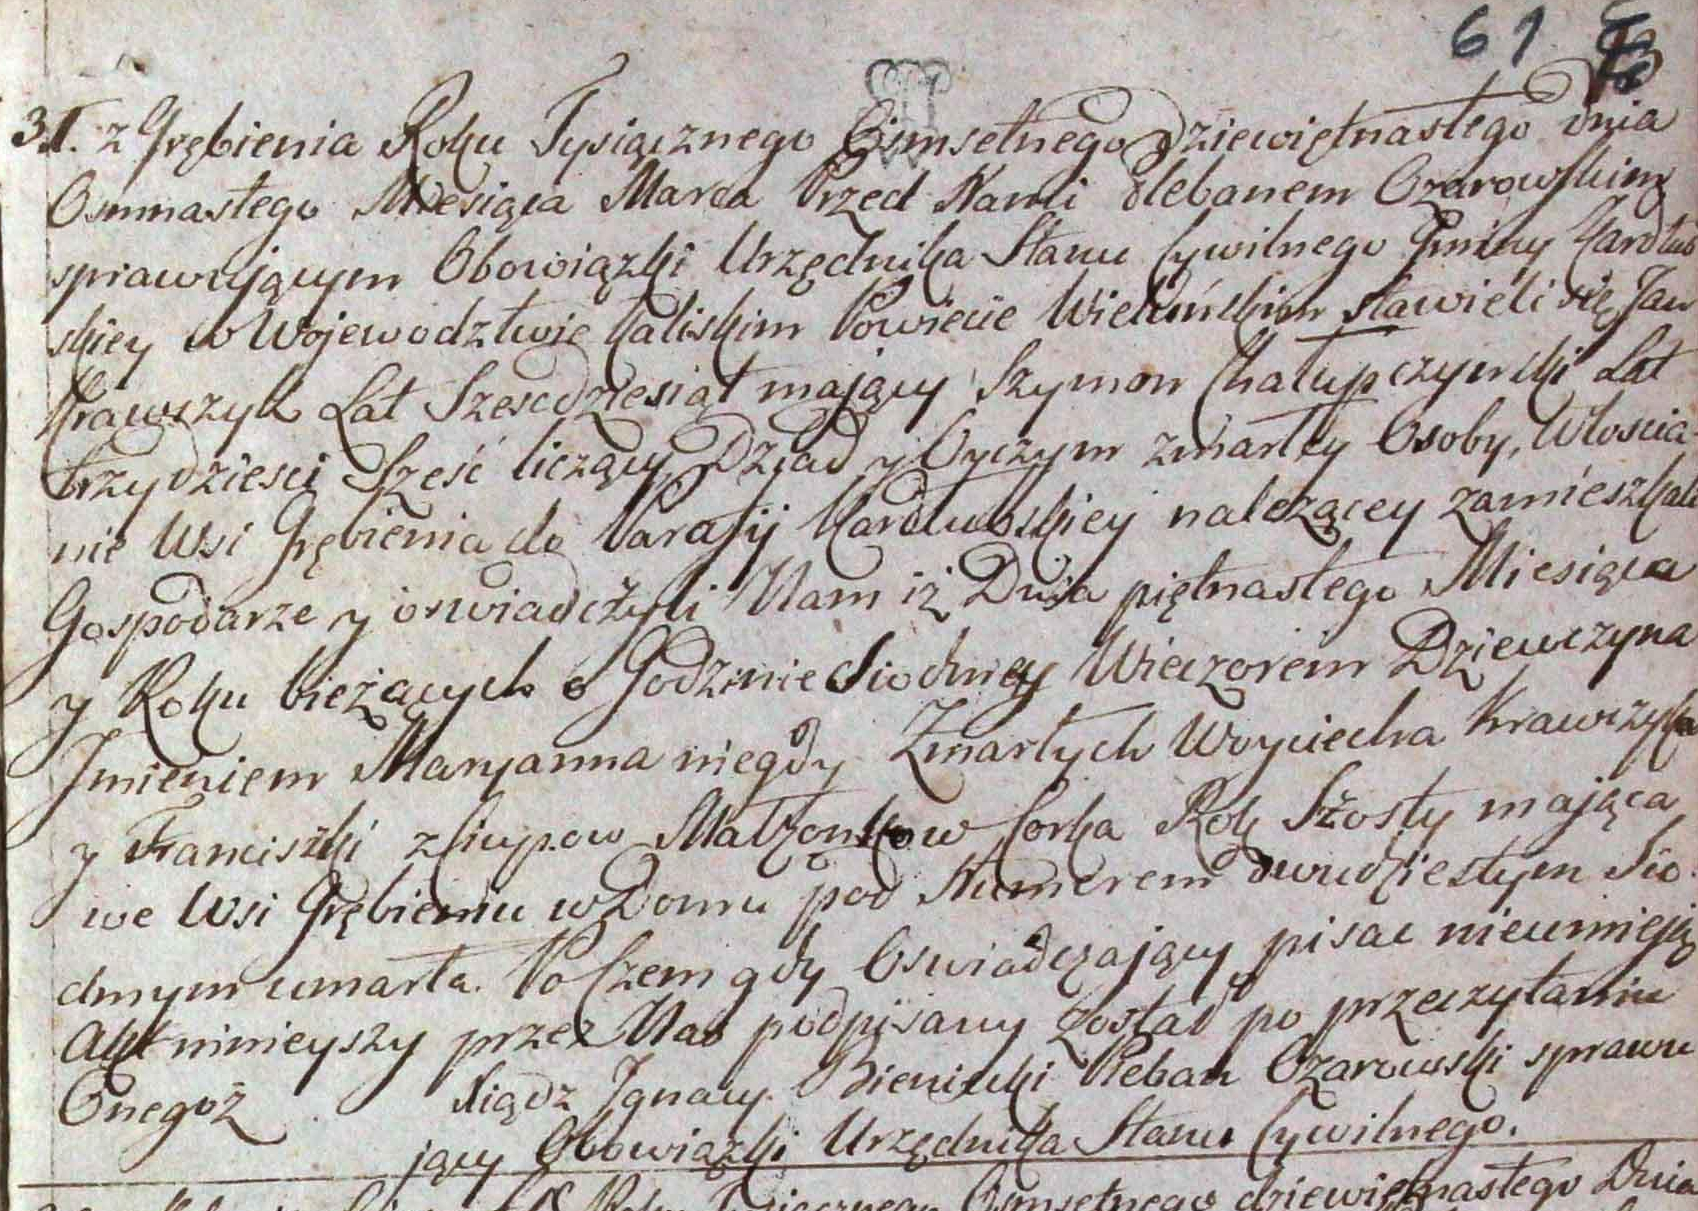 61
31. z Grębienia Roku Tysiącznego Osmsetnego Dziewiętnastego dnia
Osmnastego Miesiąca Marca Przed Nami Plebanem Ozarowskim
sprawuiącym Obowiązki Urzędnika Stanu Cywilnego Gminy Kardłub
skiey w Wojewodztwie Kaliskim Powiecie Wieluńskim stawieli się Jan
Krawczyk Lat Szescdziesiąt mający Szymon Chałupczynski Lat
trzydziesci Sześć liczący, Dziad y Oyczym zmarłey Osoby, Włoscia
nie Wsi Grębienia do Parafij Kardłubskiey należącey zamieszkali
Gospodarze y oswiadczyli Nam iż Dnia piętnastego Miesiąca
y Roku bieżących o Godzinie Siodmey Wieczorem Dziewczyna
Jmieniem Maryanna niegdy Zmarłych Woyciecha Krawczyka
y Franciszki z Ciupow Małżonkow Corka Rok Szosty mająca
we Wsi Grębieniu w Domu pod Numerem dwudziestym Sio
dmym umarła. Po Czem gdy Oswiadczający pisac nieumieją
Akt ninieyszy przez Nas podpisany został po przeczytaniu
Onegoż Xiądz Ignacy Bieniecki Pleban Ozarowski sprawu
jący Obowiązki Urzędnika Stanu Cywilnego.
Roku Tysiącznego Osmsetnego dziewiętnastego Dnia